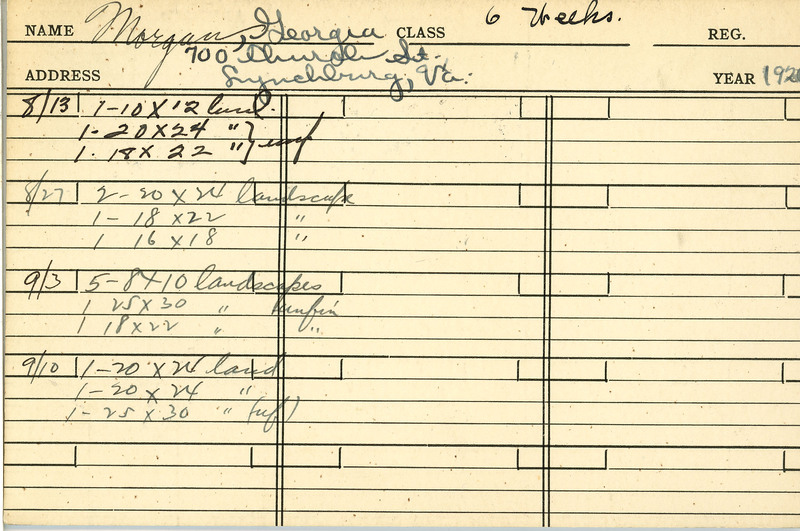 NAME Morgan, Georgia CLASS 6 Weeks. REG.
700 Church St.
ADDRESS Lynchburg, Va. YEAR 192
8/13 1-10X12 land.
1-20X24 " } unf
1-18X22 " }
8/27 2-20X24 landscape
1-18X22 "
1 16X18 "
9/3 5-8X10 landscapes
1 25X30 " unfin
1 18X22 " "
9/10 1-20X24 land
1-20X24 "
1-25X30 " (uf)